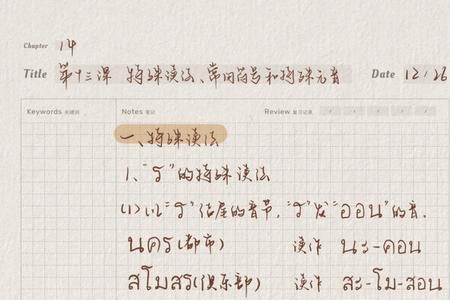 Chapter 14
Title 第十三课 特殊读法、常用符号和特殊元音 Date 12/26
Keywords 关键词 Notes 笔记 Review 复习记录
一、特殊读法
1、"ร"的特殊读法
(1)以"ร"结尾的音节,"ร"发"ออน"的音.
นคร(都市) 读作 นะ-คอน
สโมสร(俱乐部) 读作 สะ-โม-สอน